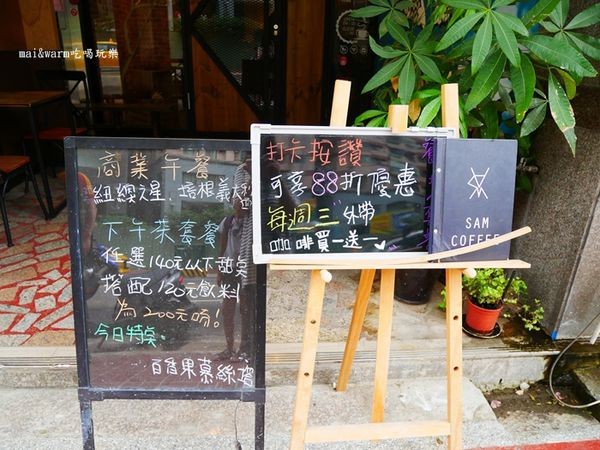 mai&warm吃喝玩樂
商業午餐
紐澳之星.培根義大利
下午茶套餐
任選140元以下甜點
搭配120元飲料
為200元唷!
今日特點:
百香果慕絲塔
打卡按讚
可享88折優惠
每週三外帶
咖啡買一送一
SAM
COFFEE